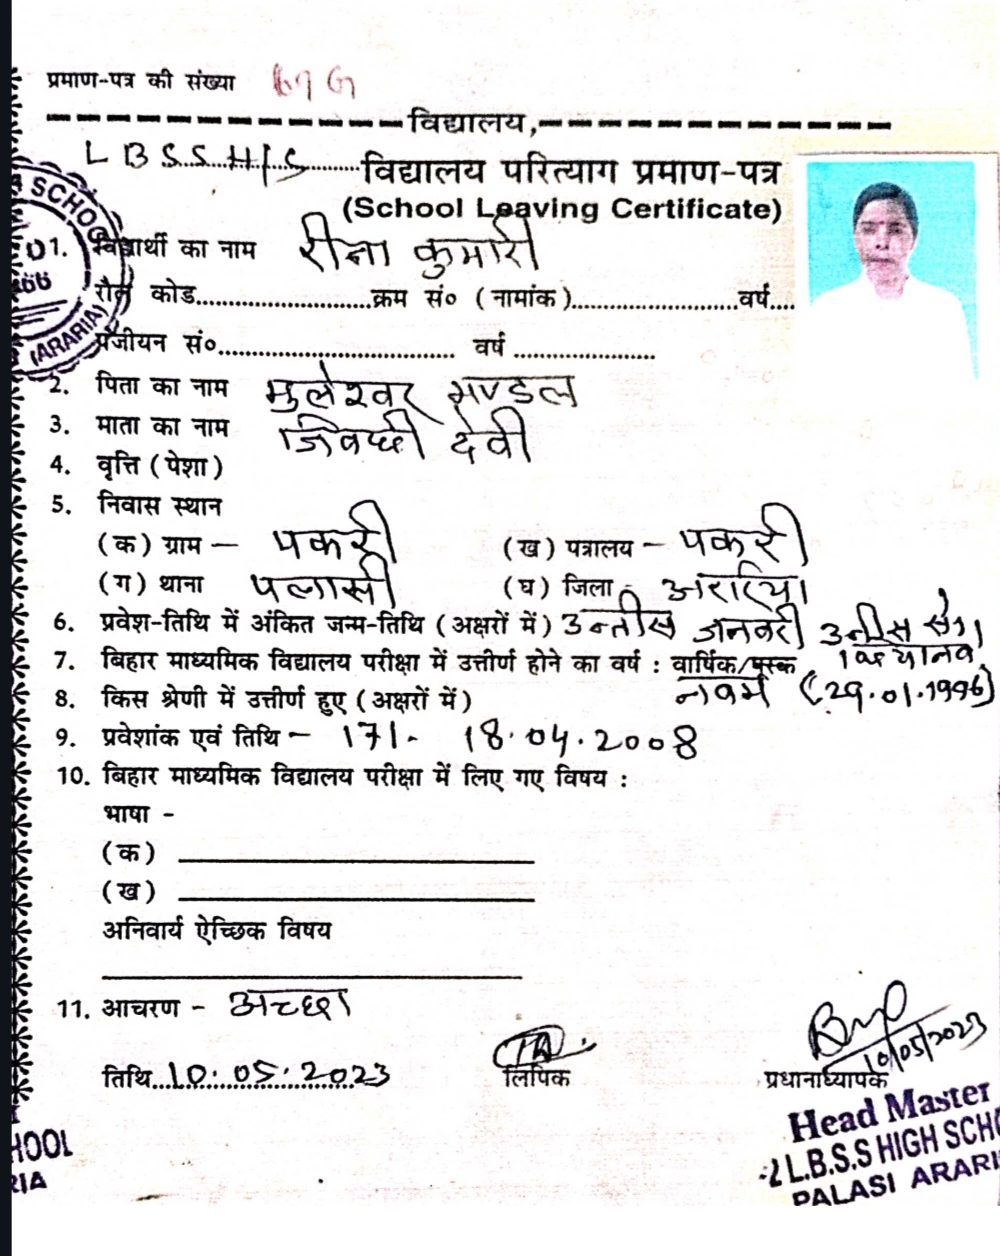 प्रमाण-पत्र की संख्या
विद्यालय,
L B S S H/S विद्यालय परित्याग प्रमाण-पत्र
(School Leaving Certificate)
SCHOOL
(ARARIA)
1. विद्यार्थी का नाम रीना कुमारी
रौल कोड....................क्रम सं० (नामांक)....................वर्ष....
पंजीयन सं०.............................. वर्ष ..................
2. पिता का नाम मुलेश्वर मण्डल
3. माता का नाम जिवछी देवी
4. वृत्ति (पेशा)
5. निवास स्थान
(क) ग्राम – पकरी (ख) पत्रालय – पकरी
(ग) थाना पलासी (घ) जिला - अररिया
6. प्रवेश-तिथि में अंकित जन्म-तिथि (अक्षरों में) उन्तीस जनवरी उन्नीस सौ
7. बिहार माध्यमिक विद्यालय परीक्षा में उत्तीर्ण होने का वर्ष : वार्षिक/पूरक
8. किस श्रेणी में उत्तीर्ण हुए (अक्षरों में) नवम (29.01.1996)
9. प्रवेशांक एवं तिथि – 171- 18.04.2008
10. बिहार माध्यमिक विद्यालय परीक्षा में लिए गए विषय :
भाषा -
(क)
(ख)
अनिवार्य ऐच्छिक विषय
11. आचरण - अच्छा
10/05/2023
तिथि 10.05.2023 लिपिक प्रधानाध्यापक
Head Master
L.B.S.S HIGH SCHO
PALASI ARARI
HOOL
RIA